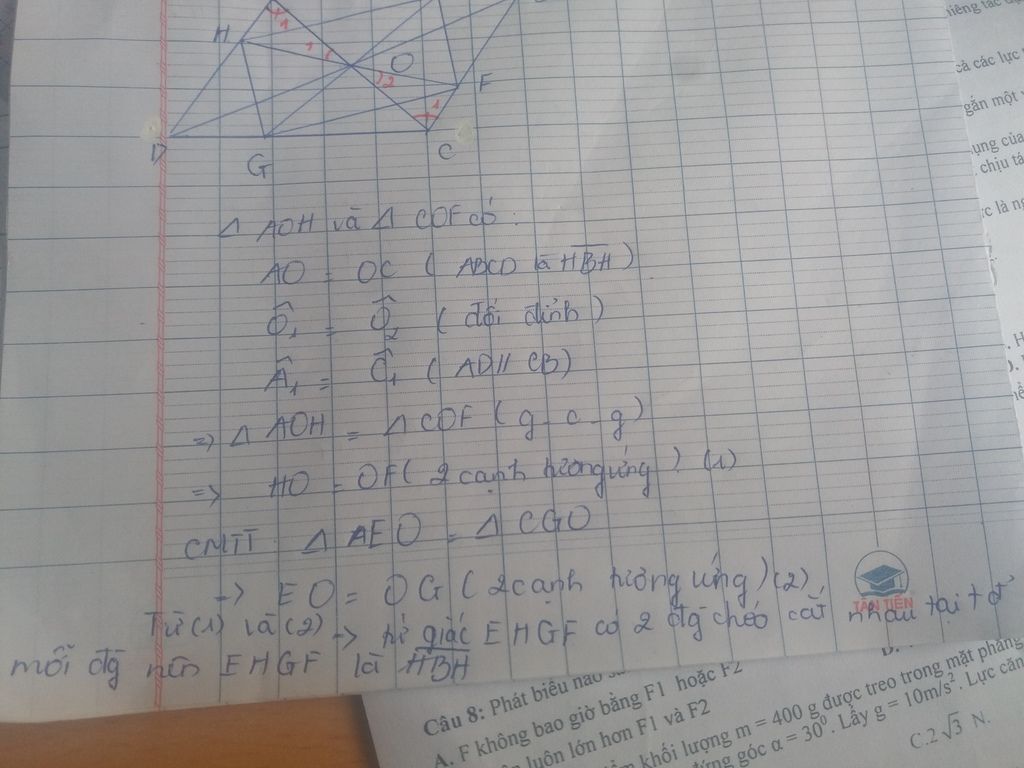 H
1
1
1
O
2
F
1
D
G
C
Δ AOH và Δ COF có :
AO = OC ( ABCD là HBH )
Ô1 = Ô2 ( đối đỉnh )
Â1 = Ĉ1 ( AD // CB)
=> Δ AOH = Δ COF ( g - c - g )
=> HO = OF ( 2 cạnh tương ứng ) (1)
CMTT : Δ AEO = Δ CGO
-> EO = OG ( 2 cạnh tương ứng ) (2)
Từ (1) và (2) -> tứ giác EHGF có 2 đg chéo cắt nhau tại t đ'
mỗi đg nên EHGF là HBH
TÂN TIẾN
cả các lực
gắn một
ụng của
chịu tá
ực là ng
Câu 8: Phát biểu nào
A. F không bao giờ bằng F1 hoặc F2
luôn lớn hơn F1 và F2
khối lượng m = 400 g được treo trong mặt phẳng
đứng góc α = 30⁰. Lấy g = 10m/s². Lực căn
C.2√3 N.
D.